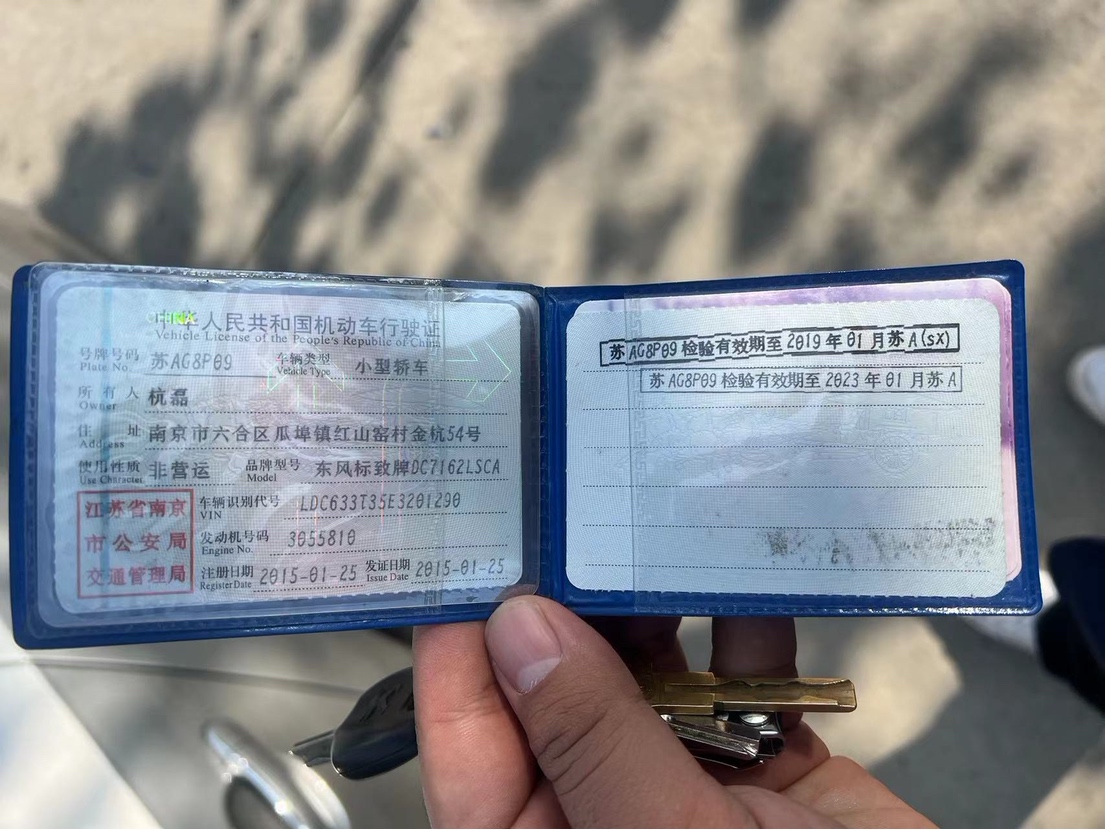 中华人民共和国机动车行驶证
Vehicle License of the People's Republic of China
号牌号码 苏AG8P09 车辆类型 小型轿车
Plate No. Vehicle Type
所有人 杭磊
Owner
住址 南京市六合区瓜埠镇红山窑村金杭54号
Address
使用性质 非营运 品牌型号 东风标致牌DC7162LSCA
Use Character Model
江苏省南京
市公安局
交通管理局
车辆识别代号 LDC633T35E3201290
VIN
发动机号码 3055810
Engine No.
注册日期 2015-01-25 发证日期 2015-01-25
Register Date Issue Date
苏AG8P09检验有效期至2019年01月苏A(sx)
苏AG8P09检验有效期至2023年01月苏A